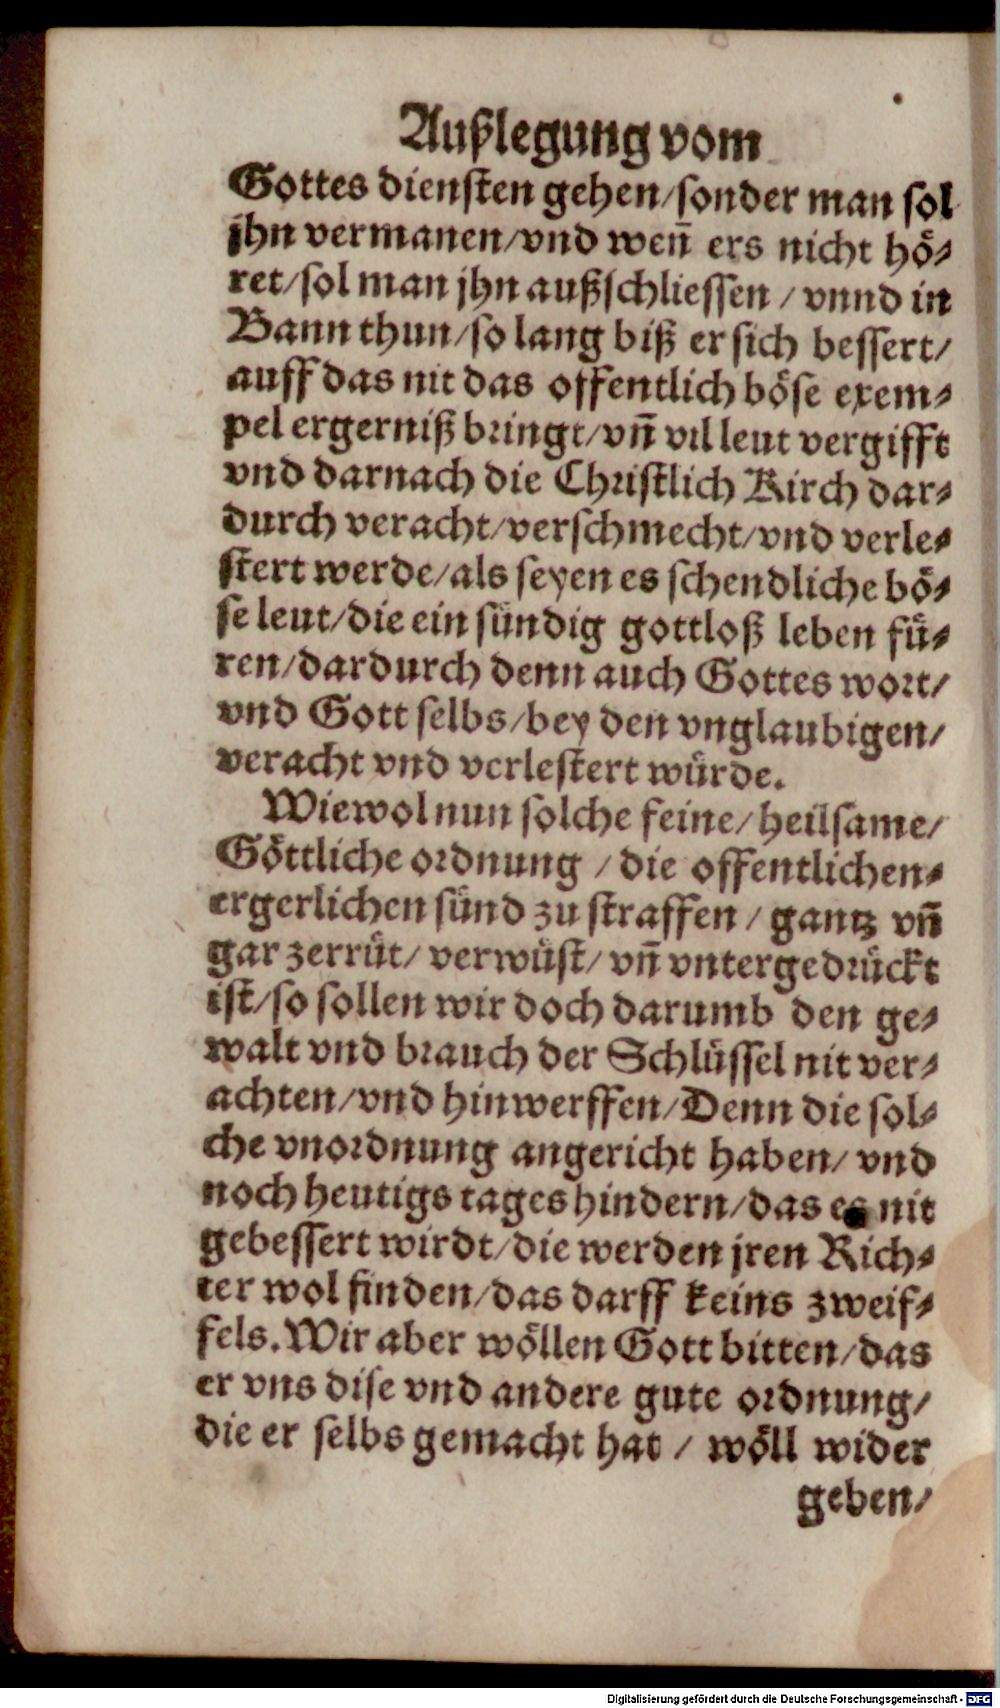 Außlegung vom
Gottes diensten gehen/sonder man sol
jhn vermanen/vnd weñ ers nicht hoͤ⸗
ret/sol man jhn außschliessen / vnnd in
Bann thun/so lang biß er sich bessert/
auff das nit das offentlich boͤse exem⸗
pel ergerniß bringt/vñ vil leut vergifft
vnd darnach die Christlich Kirch dar⸗
durch veracht/verschmecht/vnd verle⸗
stert werde/als seyen es schendliche boͤ⸗
se leut/die ein suͤndig gottloß leben fuͤ⸗
ren/dardurch denn auch Gottes wort/
vnd Gott selbs/bey den vnglaubigen/
veracht vnd verlestert wuͤrde.
Wiewol nun solche feine/heilsame/
Goͤttliche ordnung /die offentlichen⸗
ergerlichen suͤnd zu straffen / gantz vñ
gar zerruͤt/ verwuͤst/ vñ vntergedruͤckt
ist/so sollen wir doch darumb den ge⸗
walt vnd brauch der Schluͤssel nit ver⸗
achten/vnd hinwerffen/Denn die sol⸗
che vnordnung angericht haben/ vnd
noch heutigs tages hindern/das es nit
gebessert wirdt/die werden jren Rich⸗
ter wol finden/das darff keins zweif⸗
fels. Wir aber woͤllen Gott bitten/das
er vns dise vnd andere gute ordnung/
die er selbs gemacht hat / woͤll wider
geben/
Digitalisierung gefördert durch die Deutsche Forschungsgemeinschaft - DFG